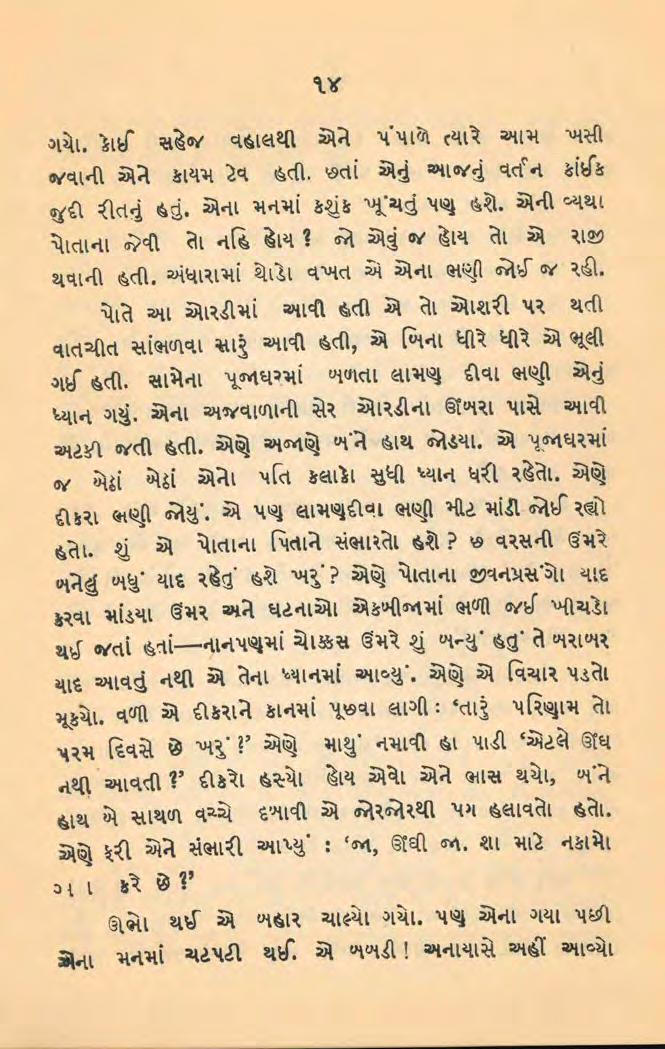 ૧૪
ગયો. કોઈ સહેજ વહાલથી એને પંપાળે ત્યારે આમ ખસી
જવાની એને કાયમ ટેવ હતી. છતાં એનું આજનું વર્તન કાંઈક
જુદી રીતનું હતું. એના મનમાં કશુંક ખૂંચતું પણ હશે. એની વ્યથા
પોતાના જેવી તો નહિ હોય ? જો એવું જ હોય તો એ રાજી
થવાની હતી. અંધારામાં થોડો વખત એ એના ભણી જોઈ જ રહી.
પોતે આ ઓરડીમાં આવી હતી એ તો ઓશરી પર થતી
વાતચીત સાંભળવા સારું આવી હતી, એ બિના ધીરે ધીરે એ ભૂલી
ગઈ હતી. સામેના પૂજાઘરમાં બળતા લામણ દીવા ભણી એનું
ધ્યાન ગયું. એના અજવાળાની સેર ઓરડીના ઊંબરા પાસે આવી
અટકી જતી હતી. એણે અજાણે બંને હાથ જોડ્યા. એ પૂજાઘરમાં
જ બેઠાં બેઠાં એનો પતિ કલાકો સુધી ધ્યાન ધરી રહેતો. એણે
દીકરા ભણી જોયું. એ પણ લામણદીવા ભણી મીટ માંડી જોઈ રહ્યો
હતો. શું એ પોતાના પિતાને સંભારતો હશે ? છ વરસની ઉંમરે
બનેલું બધું યાદ રહેતું હશે ખરું ? એણે પોતાના જીવનપ્રસંગો યાદ
કરવા માંડ્યા ઉંમર અને ઘટનાઓ એકબીજામાં ભળી જઈ ખીચડો
થઈ જતાં હતાં—નાનપણમાં ચોક્કસ ઉંમરે શું બન્યું હતું તે બરાબર
યાદ આવતું નથી એ તેના ધ્યાનમાં આવ્યું. એણે એ વિચાર પડતો
મૂક્યો. વળી એ દીકરાને કાનમાં પૂછવા લાગી : ‘તારું પરિણામ તો
પરમ દિવસે છે ખરું ?’ એણે માથું નમાવી હા પાડી ‘એટલે ઊંઘ
નથી આવતી ?’ દીકરો હસ્યો હોય એવો એને ભાસ થયો, બંને
હાથ બે સાથળ વચ્ચે દબાવી એ જોરજોરથી પગ હલાવતો હતો.
એણે ફરી એને સંભારી આપ્યું : ‘જા, ઊંઘી જા. શા માટે નકામો
કરે છે ?’
ઊભો થઈ એ બહાર ચાલ્યો ગયો. પણ એના ગયા પછી
એના મનમાં ચટપટી થઈ. એ બબડી ! અનાયાસે અહીં આવ્યો